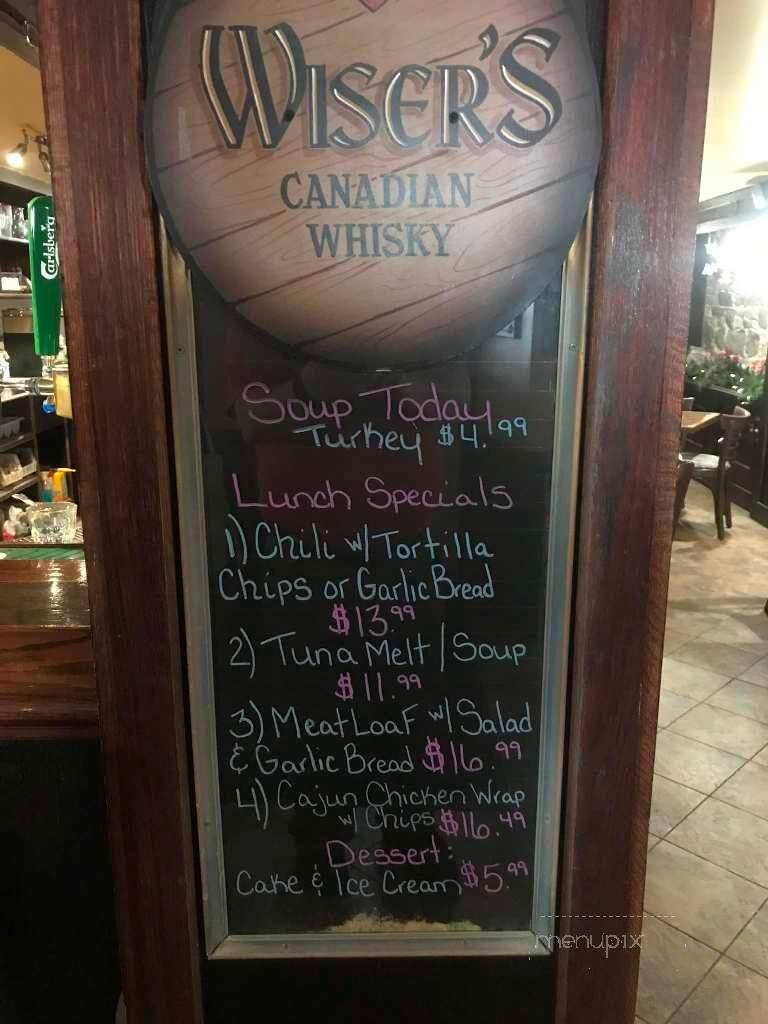 WISER'S
CANADIAN
WHISKY
Carlsberg
Soup Today
Turkey $4.99
Lunch Specials
1) Chili w/ Tortilla
Chips or Garlic Bread
$13.99
2) Tuna Melt / Soup
$11.99
3) MeatLoaf w/ Salad
& Garlic Bread $16.99
4) Cajun Chicken Wrap
w/ Chips $16.49
Dessert:
Cake & Ice Cream $5.99
menupix